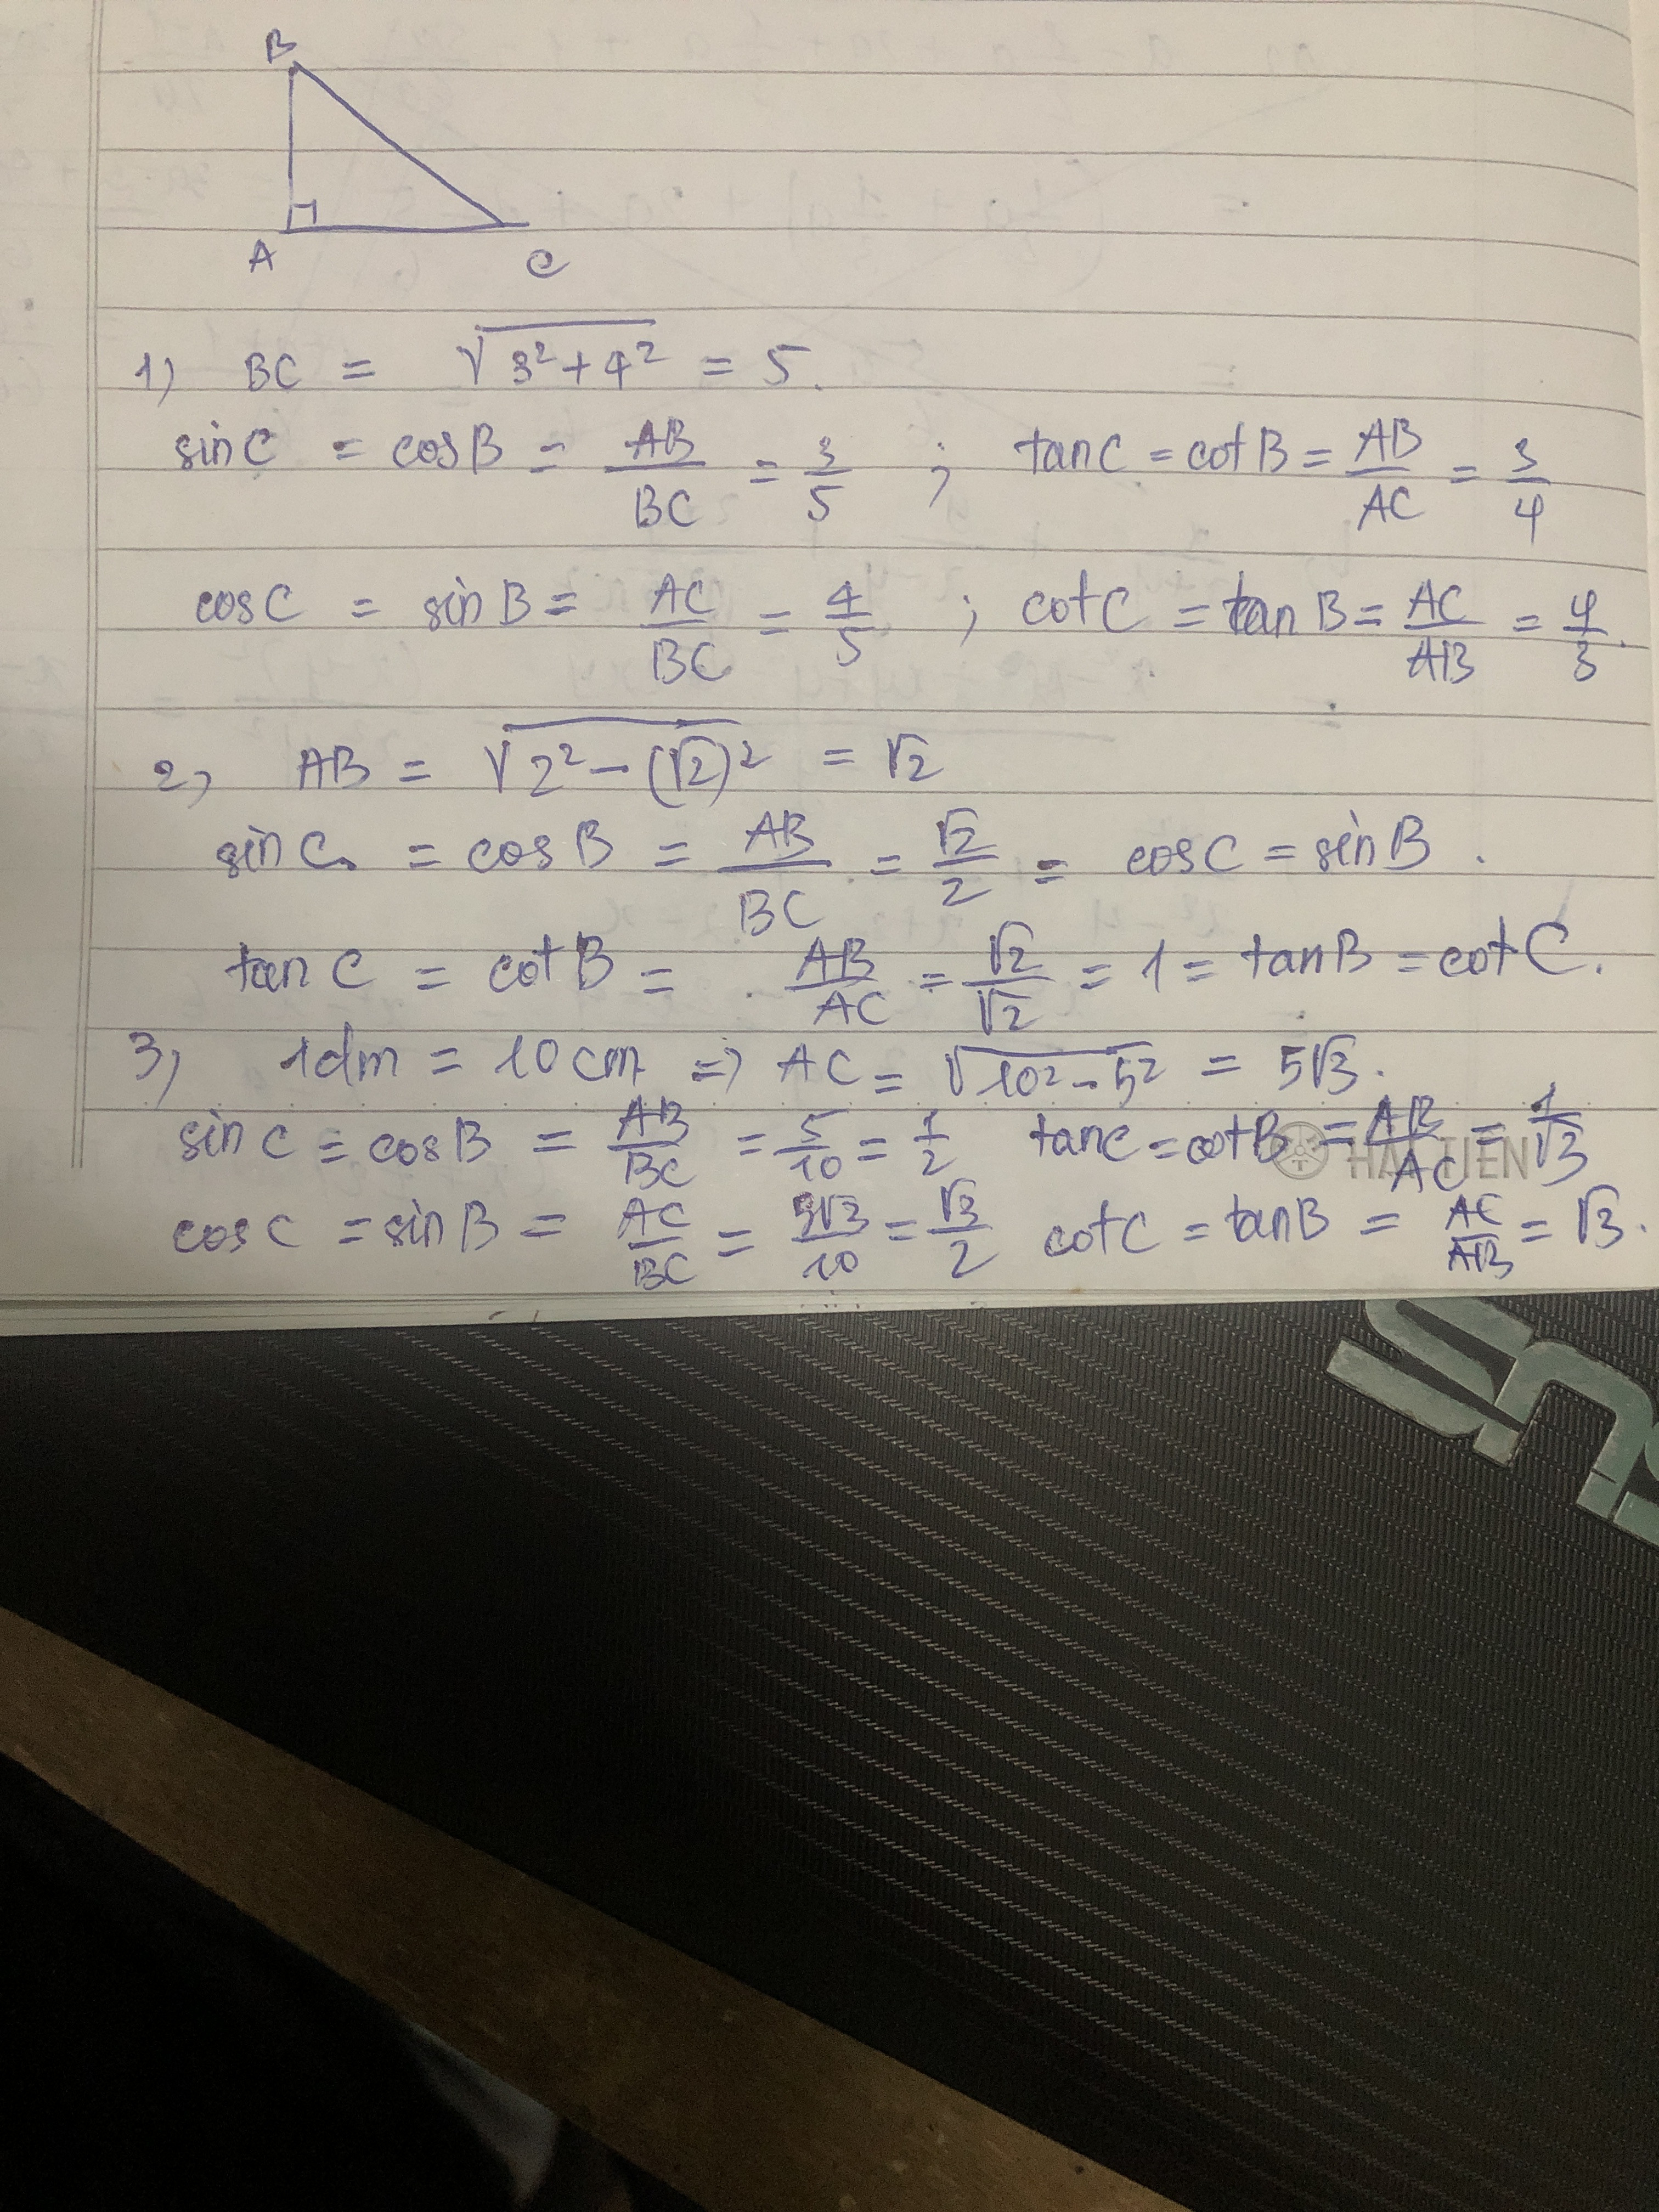 B
A C
1) BC = √(3² + 4²) = 5.
sin C = cos B = AB/BC = 3/5 ; tan C = cot B = AB/AC = 3/4
cos C = sin B = AC/BC = 4/5 ; cot C = tan B = AC/AB = 4/3.
2) AB = √(2² - (√2)²) = √2
sin C = cos B = AB/BC = √2/2 = cos C = sin B.
tan C = cot B = AB/AC = √2/√2 = 1 = tan B = cot C.
3) 1dm = 10cm => AC = √(10² - 5²) = 5√3.
sin C = cos B = AB/BC = 5/10 = 1/2 tan C = cot B = AB/AC = 1/√3
HẢI TIẾN
cos C = sin B = AC/BC = 5√3/10 = √3/2 cot C = tan B = AC/AB = √3.